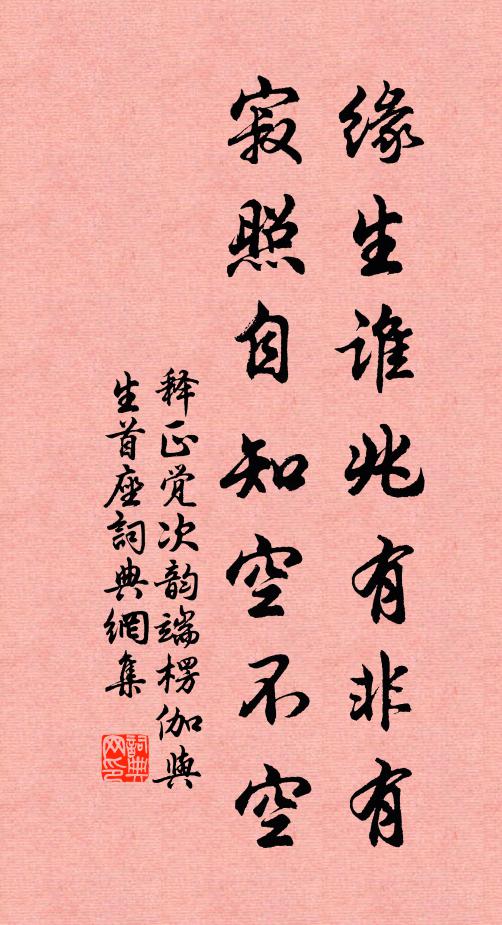 缘生谁兆有非有
寂照自知空不空
释正觉次韵端楞伽与
生首座詞典網集
詞典网印